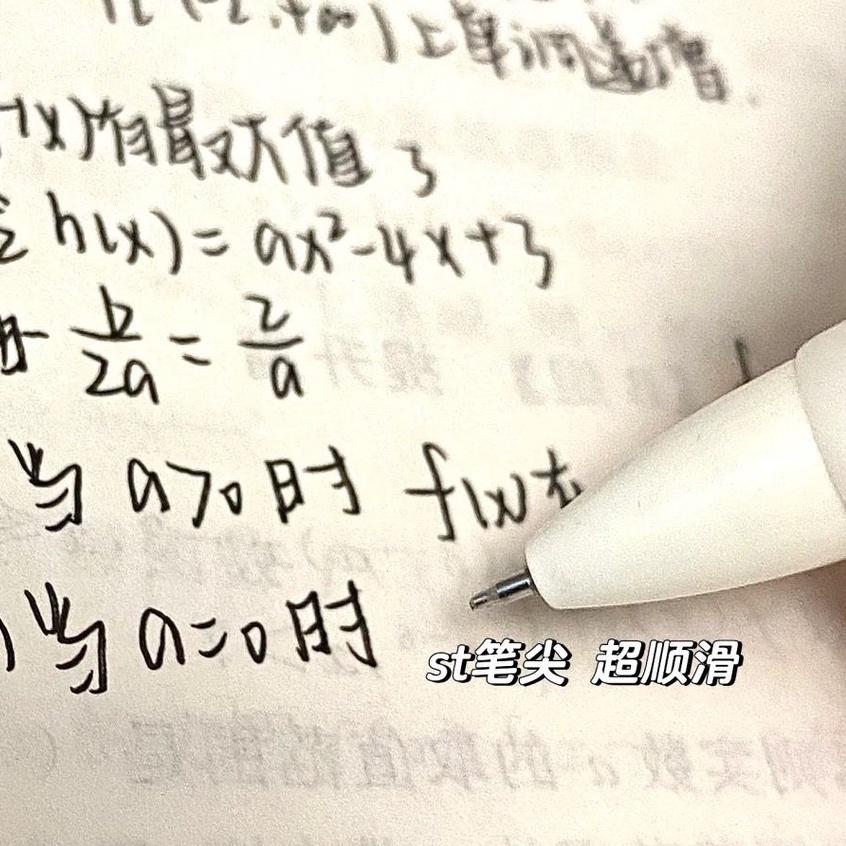 +∞)上单调递增
f(x)有最大值3
h(x)=ax²-4x+3
-b/2a=2/a
当a>0时 f(x)在
当a=0时
st笔尖 超顺滑